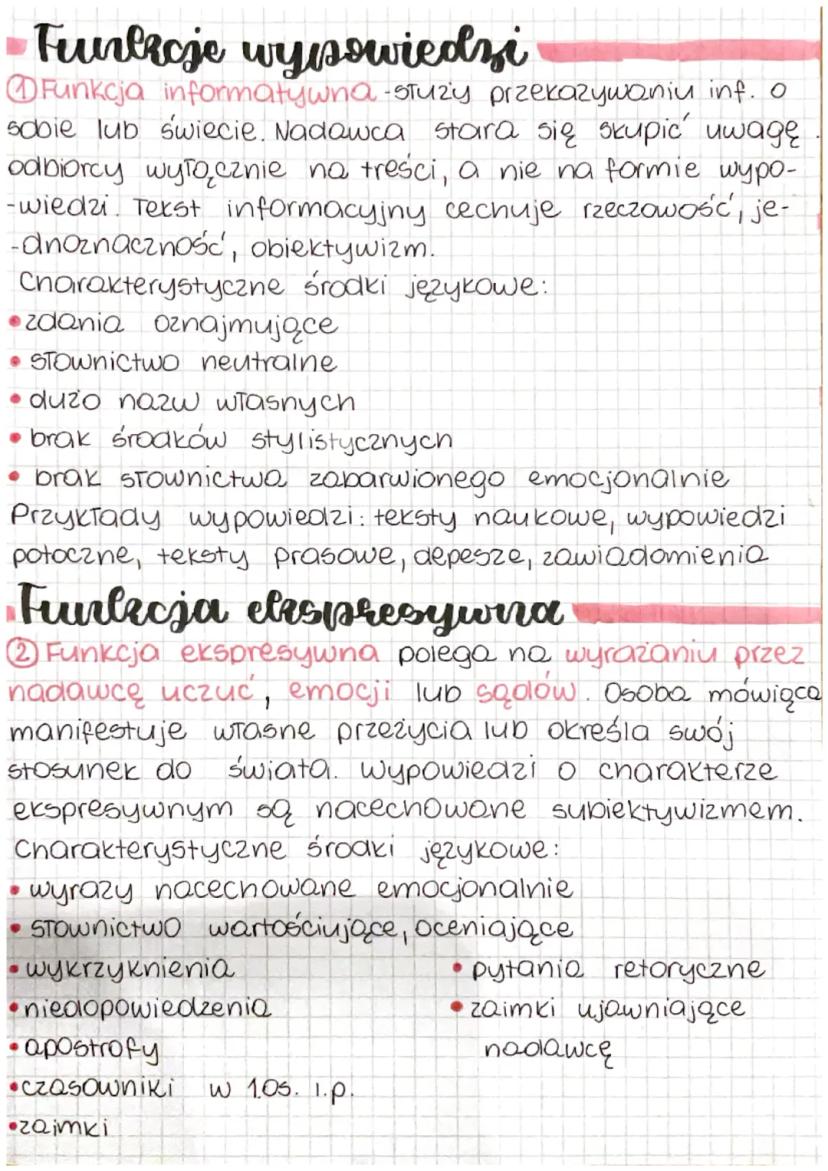 Funkcje wypowiedzi
① Funkcja informatywna - służy przekazywaniu inf. o
sobie lub świecie. Nadawca stara się skupić uwagę
odbiorcy wyłącznie na treści, a nie na formie wypo-
-wiedzi. Tekst informacyjny cechuje rzeczowość, je-
-dnoznaczność, obiektywizm.
Charakterystyczne środki językowe:
• zdania oznajmujące
• słownictwo neutralne
• dużo nazw własnych
• brak środków stylistycznych
• brak słownictwa zabarwionego emocjonalnie
Przykłady wypowiedzi: teksty naukowe, wypowiedzi
potoczne, teksty prasowe, depesze, zawiadomienia
Funkcja ekspresywna
② Funkcja ekspresywna polega na wyrażaniu przez
nadawcę uczuć, emocji lub sądów. Osoba mówiąca
manifestuje własne przeżycia lub określa swój
stosunek do świata. Wypowiedzi o charakterze
ekspresywnym są nacechowane subiektywizmem.
Charakterystyczne środki językowe:
• wyrazy nacechowane emocjonalnie
• słownictwo wartościujące, oceniające
• wykrzyknienia
• niedopowiedzenia
• apostrofy
• czasowniki w 1.os. l.p.
• zaimki
• pytania retoryczne
• zaimki ujawniające
nadawcę